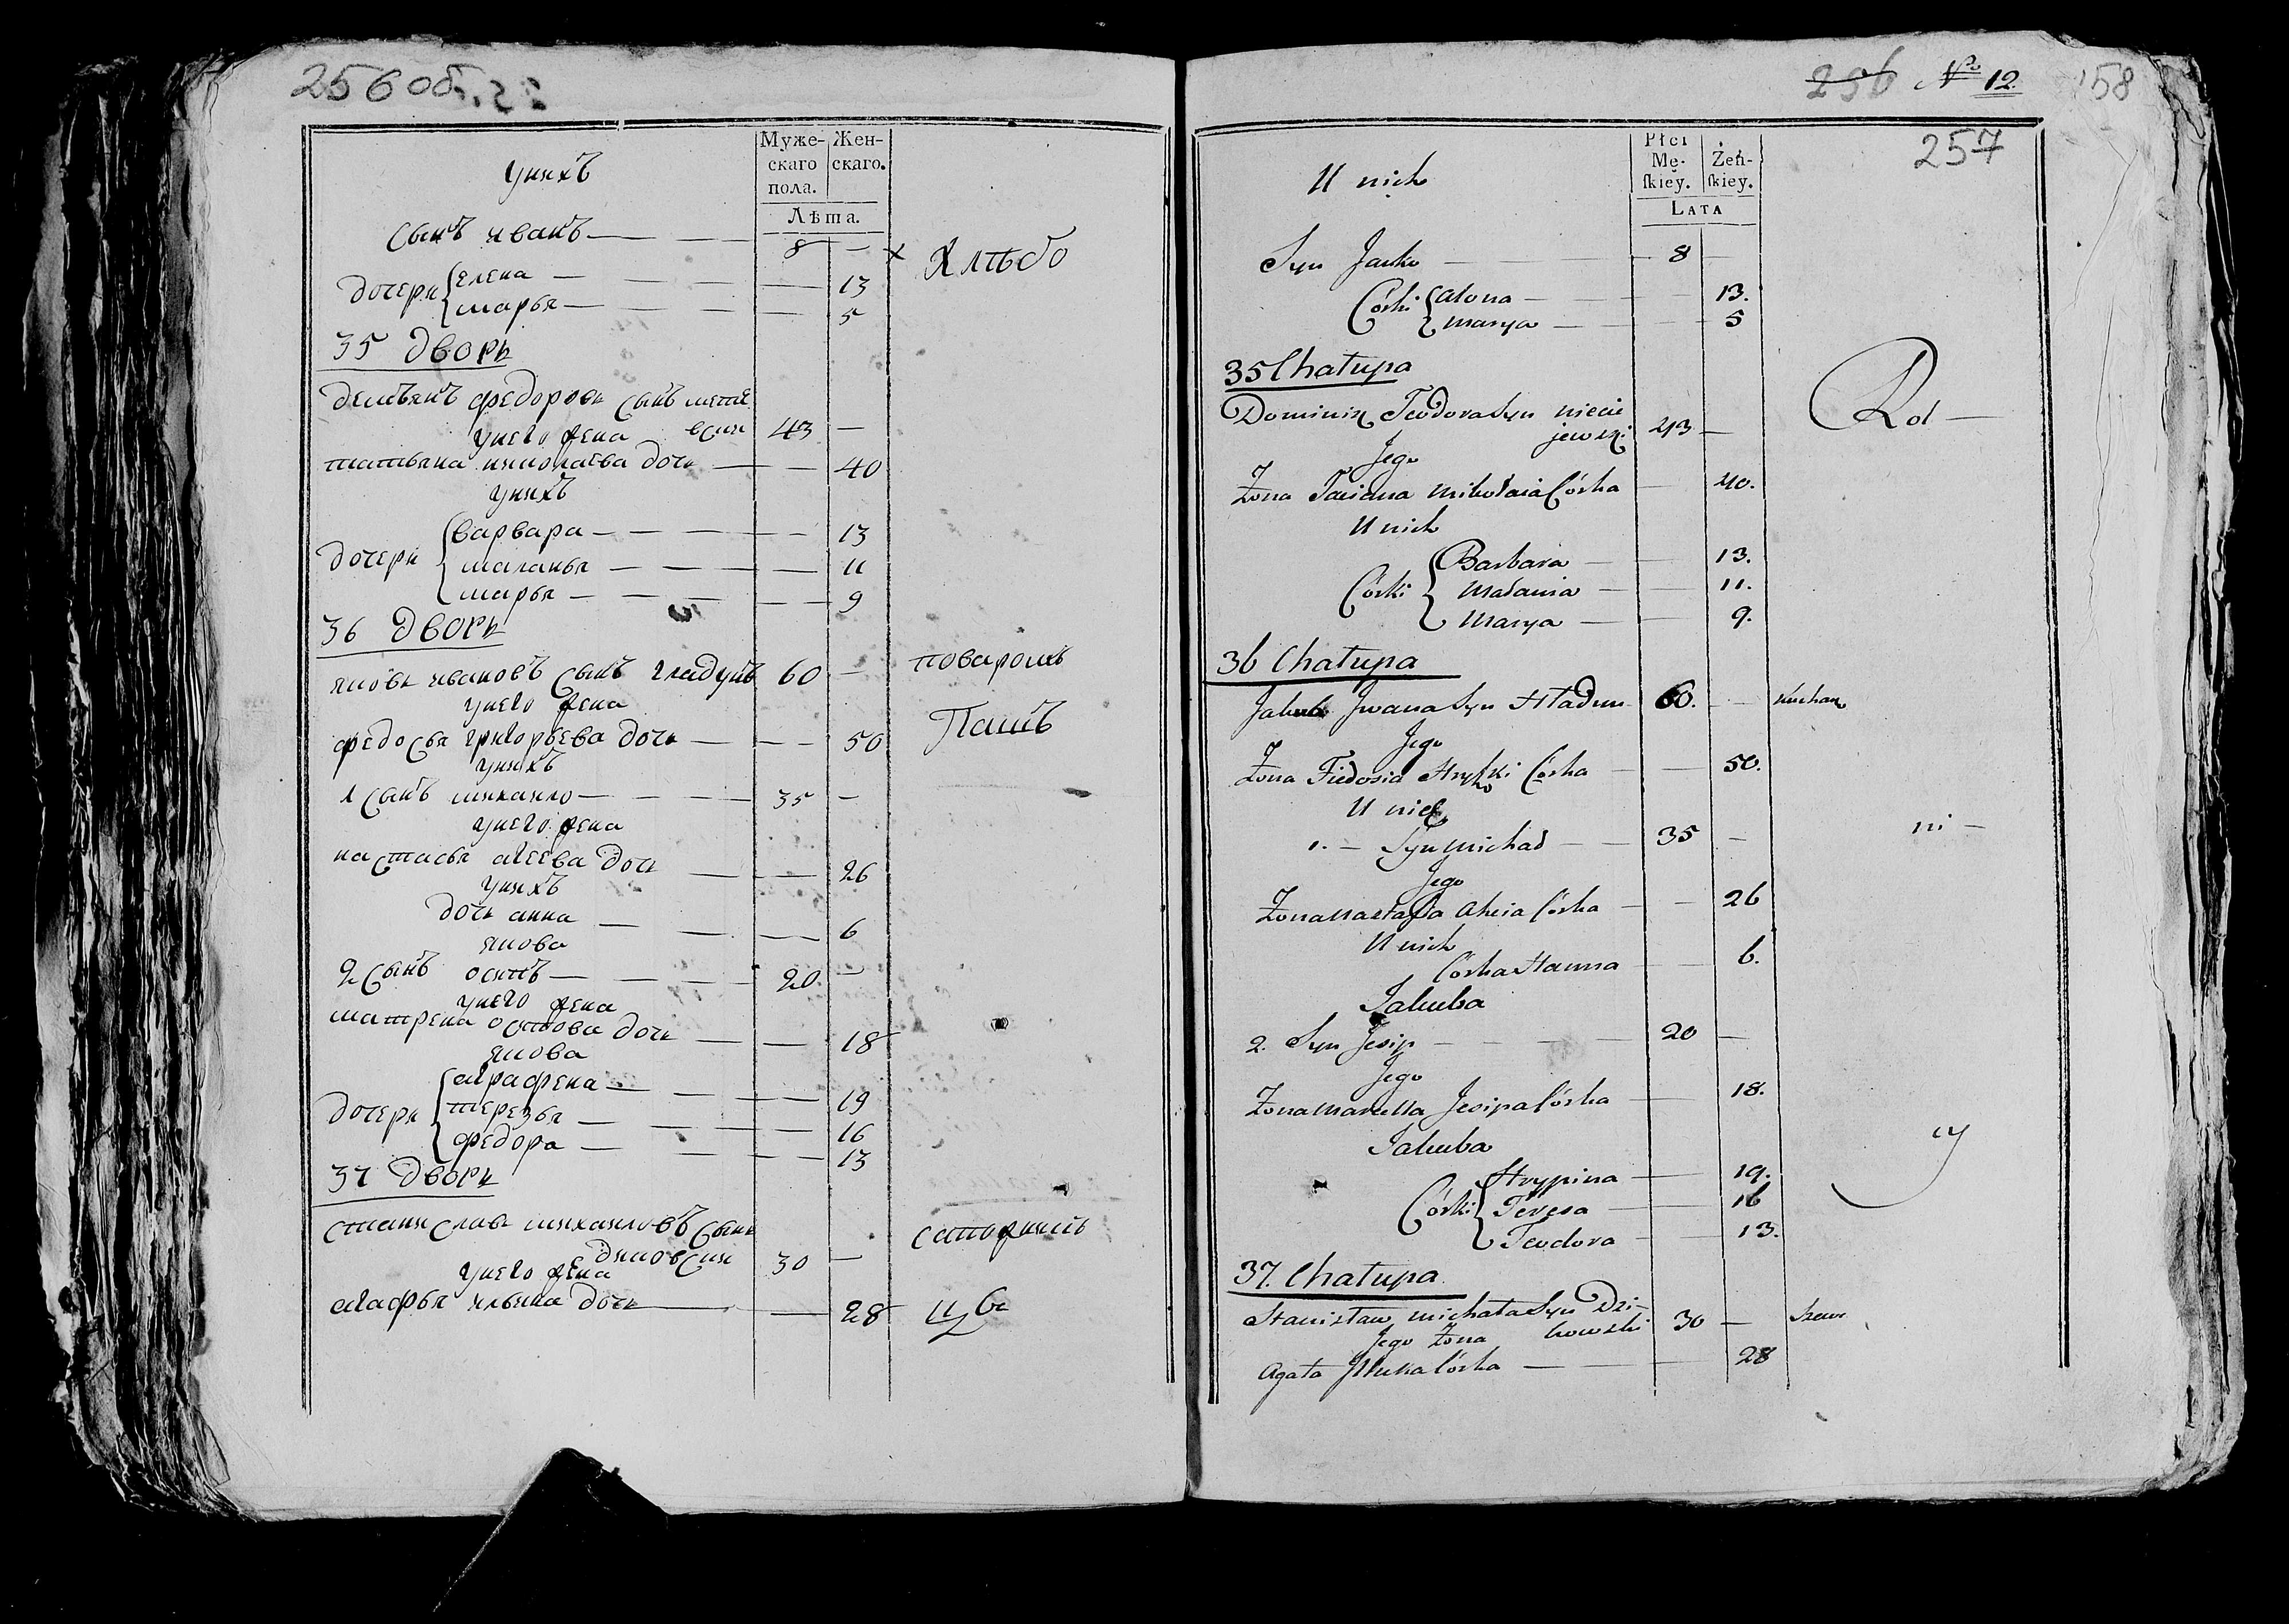 256 об.
унихъ
Муже-
скаго
пола.
Жен-
скаго.
Лѣта.
сынъ иванъ — 8 —
Хлѣбо
дочери елена — 13
марья — 5
35 дворъ
демьянъ федоровъ сынъ
унего жена 43 —
татьяна николаева дочь — 40
унихъ
дочери варвара — 13
маланья — 11
марья — 9
36 дворъ
яковъ ивановъ сынъ гладунъ 60 — поваромъ
унего жена
федосья григорьева дочь — 50
Пашъ
унихъ
1 сынъ михаило — 35 —
унего жена
настасья агеева дочь — 26
унихъ
дочь анна — 6
якова
2 сынъ осипъ — 20 —
унего жена
матрена осипова дочь — 18
якова
дочери аграфена — 19
терезья — 16
федора — 13
37 дворъ
станиславъ михаиловъ сынъ
дзиковски 30 —
унего жена
агафья ильина дочь — 28
256 № 12. 158
257
U nich
Płci
Mę-
ſkiey.
Żeń-
ſkiey.
LATA
Syn Janko — 8 —
Córki Alona — 13.
Marya — 5
35 Chałupa
Dominik Teodora Syn Niecie
jewski 43 —
Rol —
Jego
Żona Taciana Mikołaia Córka — 40.
U nich
Córki Barbara — 13.
Małania — 11.
Marya — 9.
36 Chałupa
Jakub Jwana Syn Hładun 60. — Kucharz
Jego
Żona Fiedosia Hryćki Córka — 50.
U nich
1. — Syn Michał — 35 —
ni —
Jego
Żona Nastazia Aheia Córka — 26
U nich
Córka Hanna — 6.
Jakuba
2. Syn Jesip — 20 —
Jego
Żona Marella Jesipa Córka — 18.
Jakuba
cy
Córki Hrypina — 19.
Teresa — 16
Teodora — 13.
37. Chałupa
Stanisław Michała Syn Dzi-
kowski 30 — Szewc
Jego Żona
Agata Córka — 28